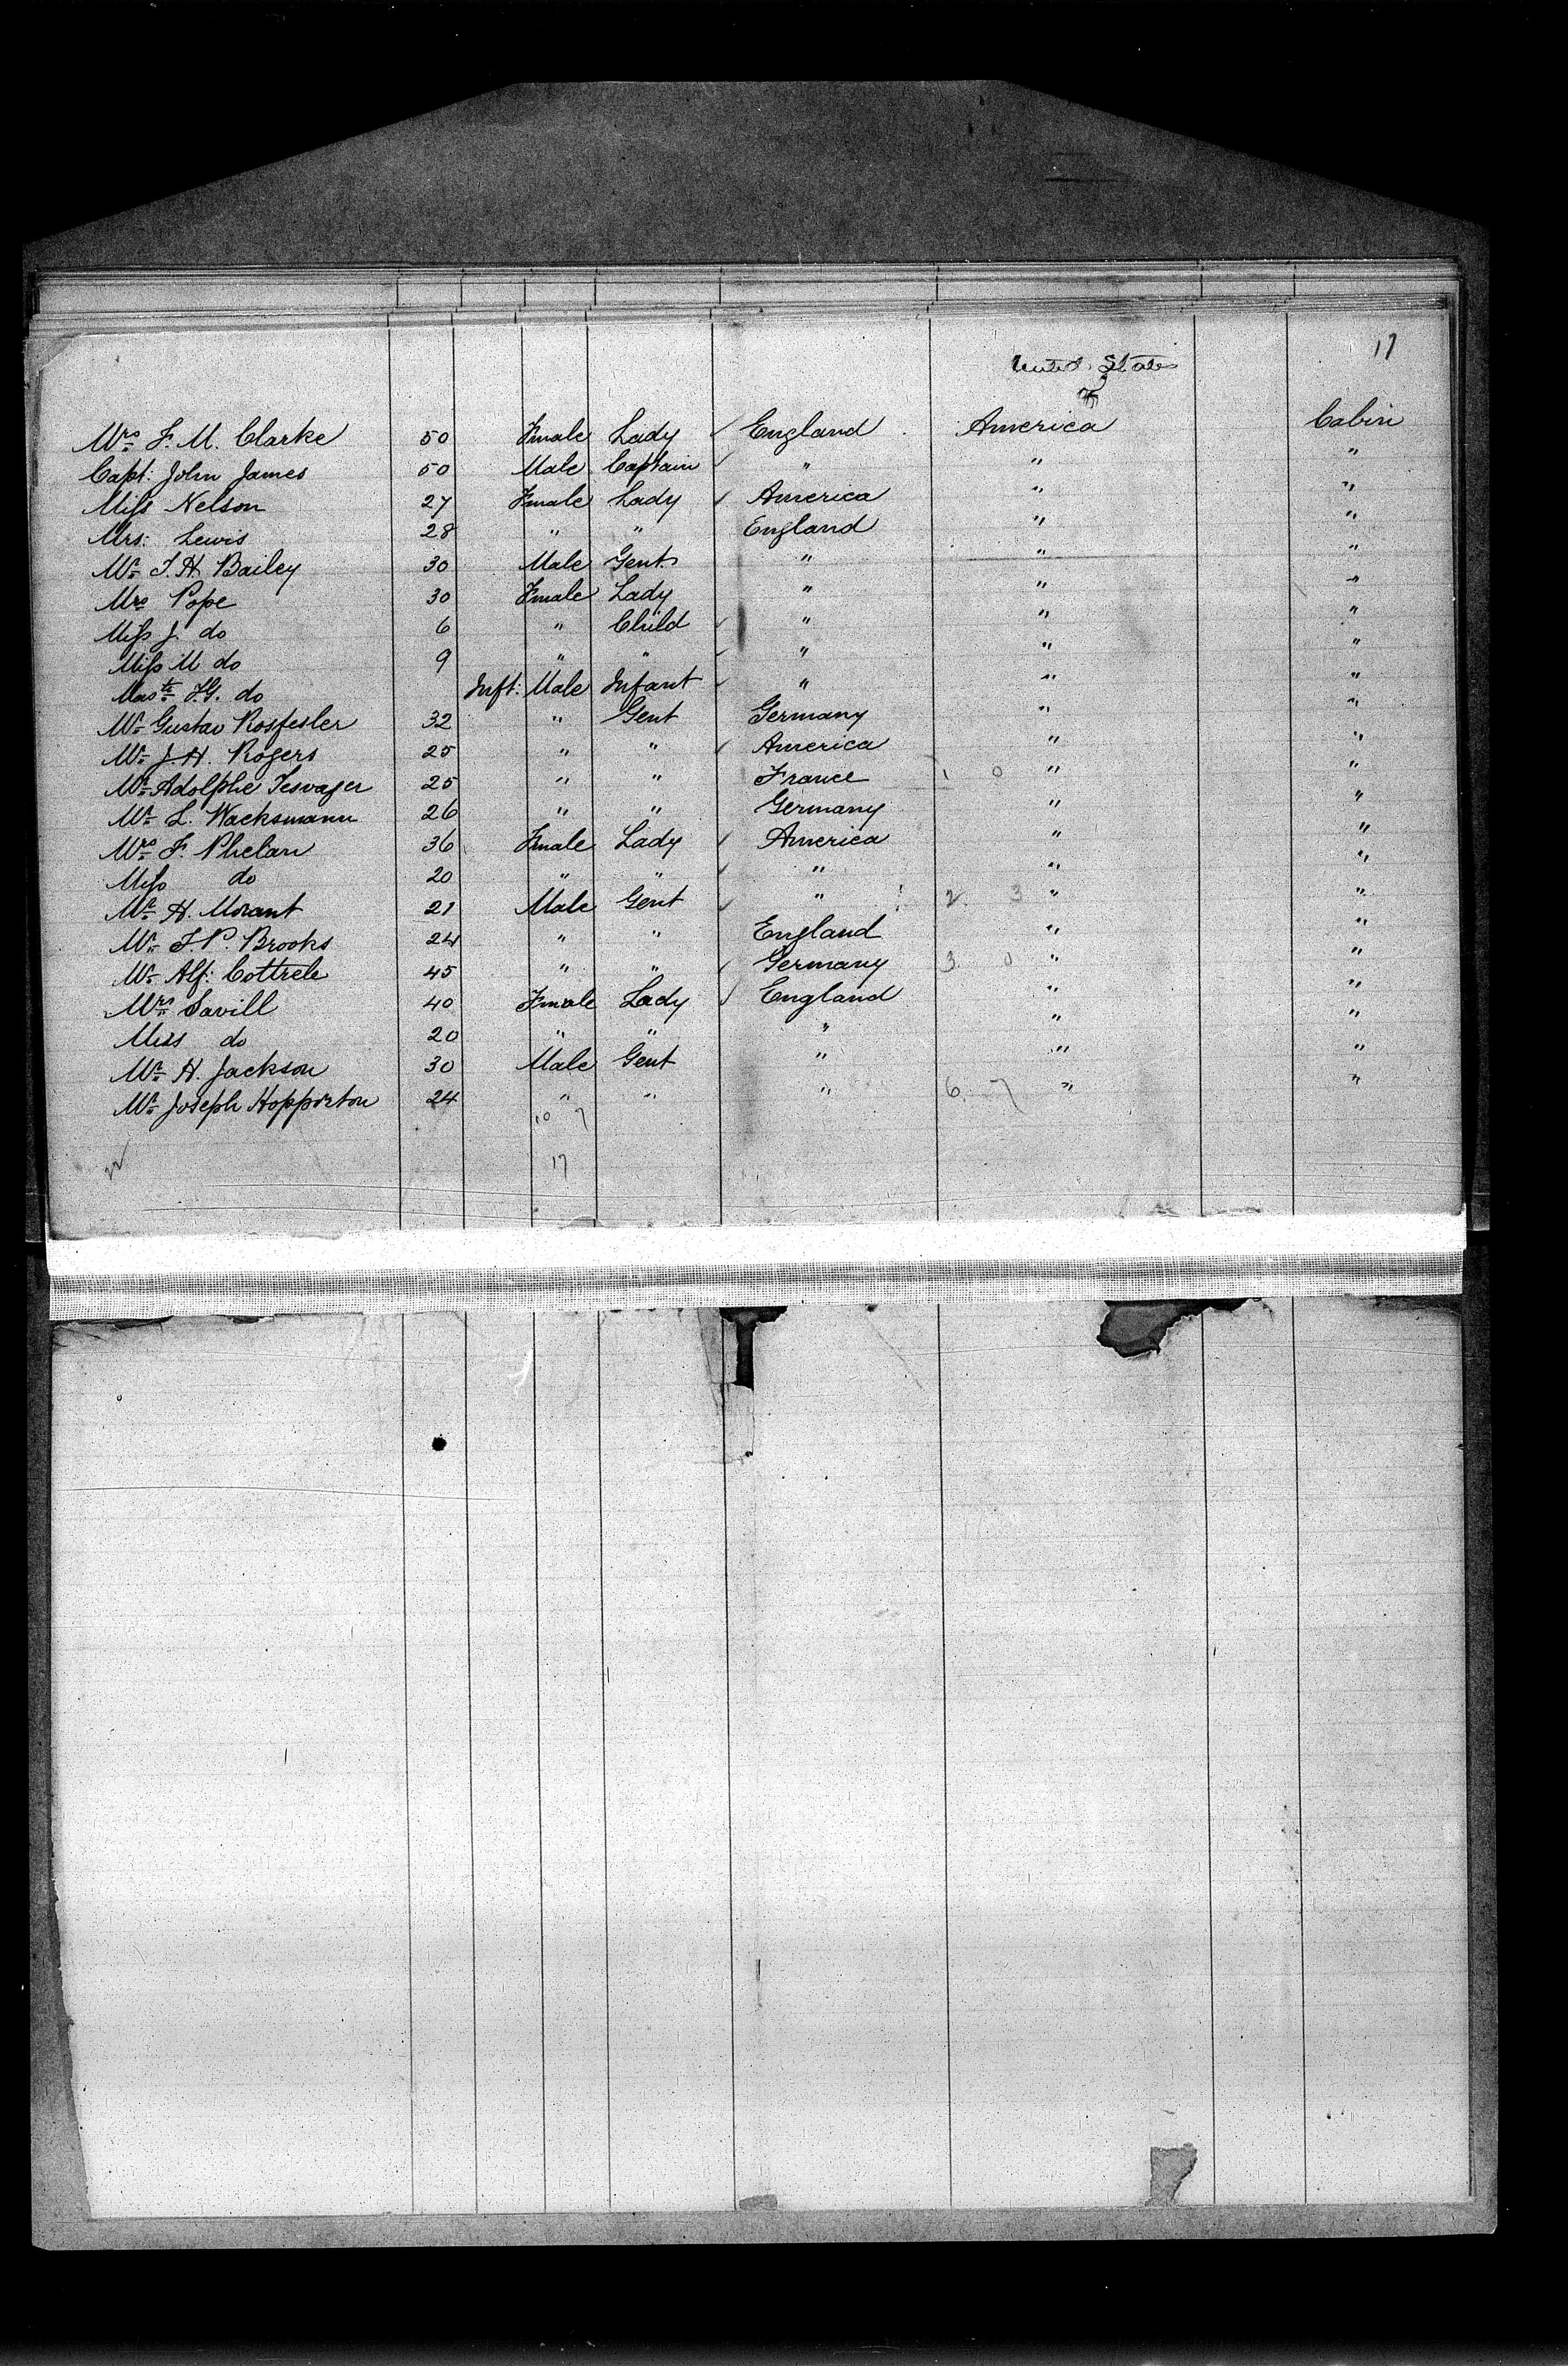 17
United States
of
Mrs F. M. Clarke 50 Female Lady ✓ England America Cabin
Capt: John James 50 Male Captain ✓ " " "
Miss Nelson 27 Female Lady ✓ America " "
Mrs: Lewis 28 " " England " "
Mr J. H. Bailey 30 Male Gent " " "
Mrs Pope 30 Female Lady " " "
Miss J. do 6 " Child ✓ " " "
Miss M do 9 " " ✓ " " "
Mastr F.G. do Inft: Male Infant ✓ " " "
Mr Gustav 32 " Gent Germany " "
Mr J. H. Rogers 25 " " ✓ America " "
Mr Adolphe 25 " " France 1 0 " "
Mr L. Wacksmann 26 " " Germany " "
Mrs F. Phelan 36 Female Lady ✓ America " "
Miss do 20 " " ✓ " " "
Mr H. Morant 21 Male Gent ✓ " 2 3 " "
Mr J. P. Brooks 24 " " England " "
Mr Alf: Cottrele 45 " " ✓ Germany 3 0 " "
Mrs Savill 40 Female Lady ✓ England " "
Miss do 20 " " " " "
Mr H. Jackson 30 Male Gent " " "
Mr Joseph Hopporton 24 " " " 6 7 " "
10 7
22 17